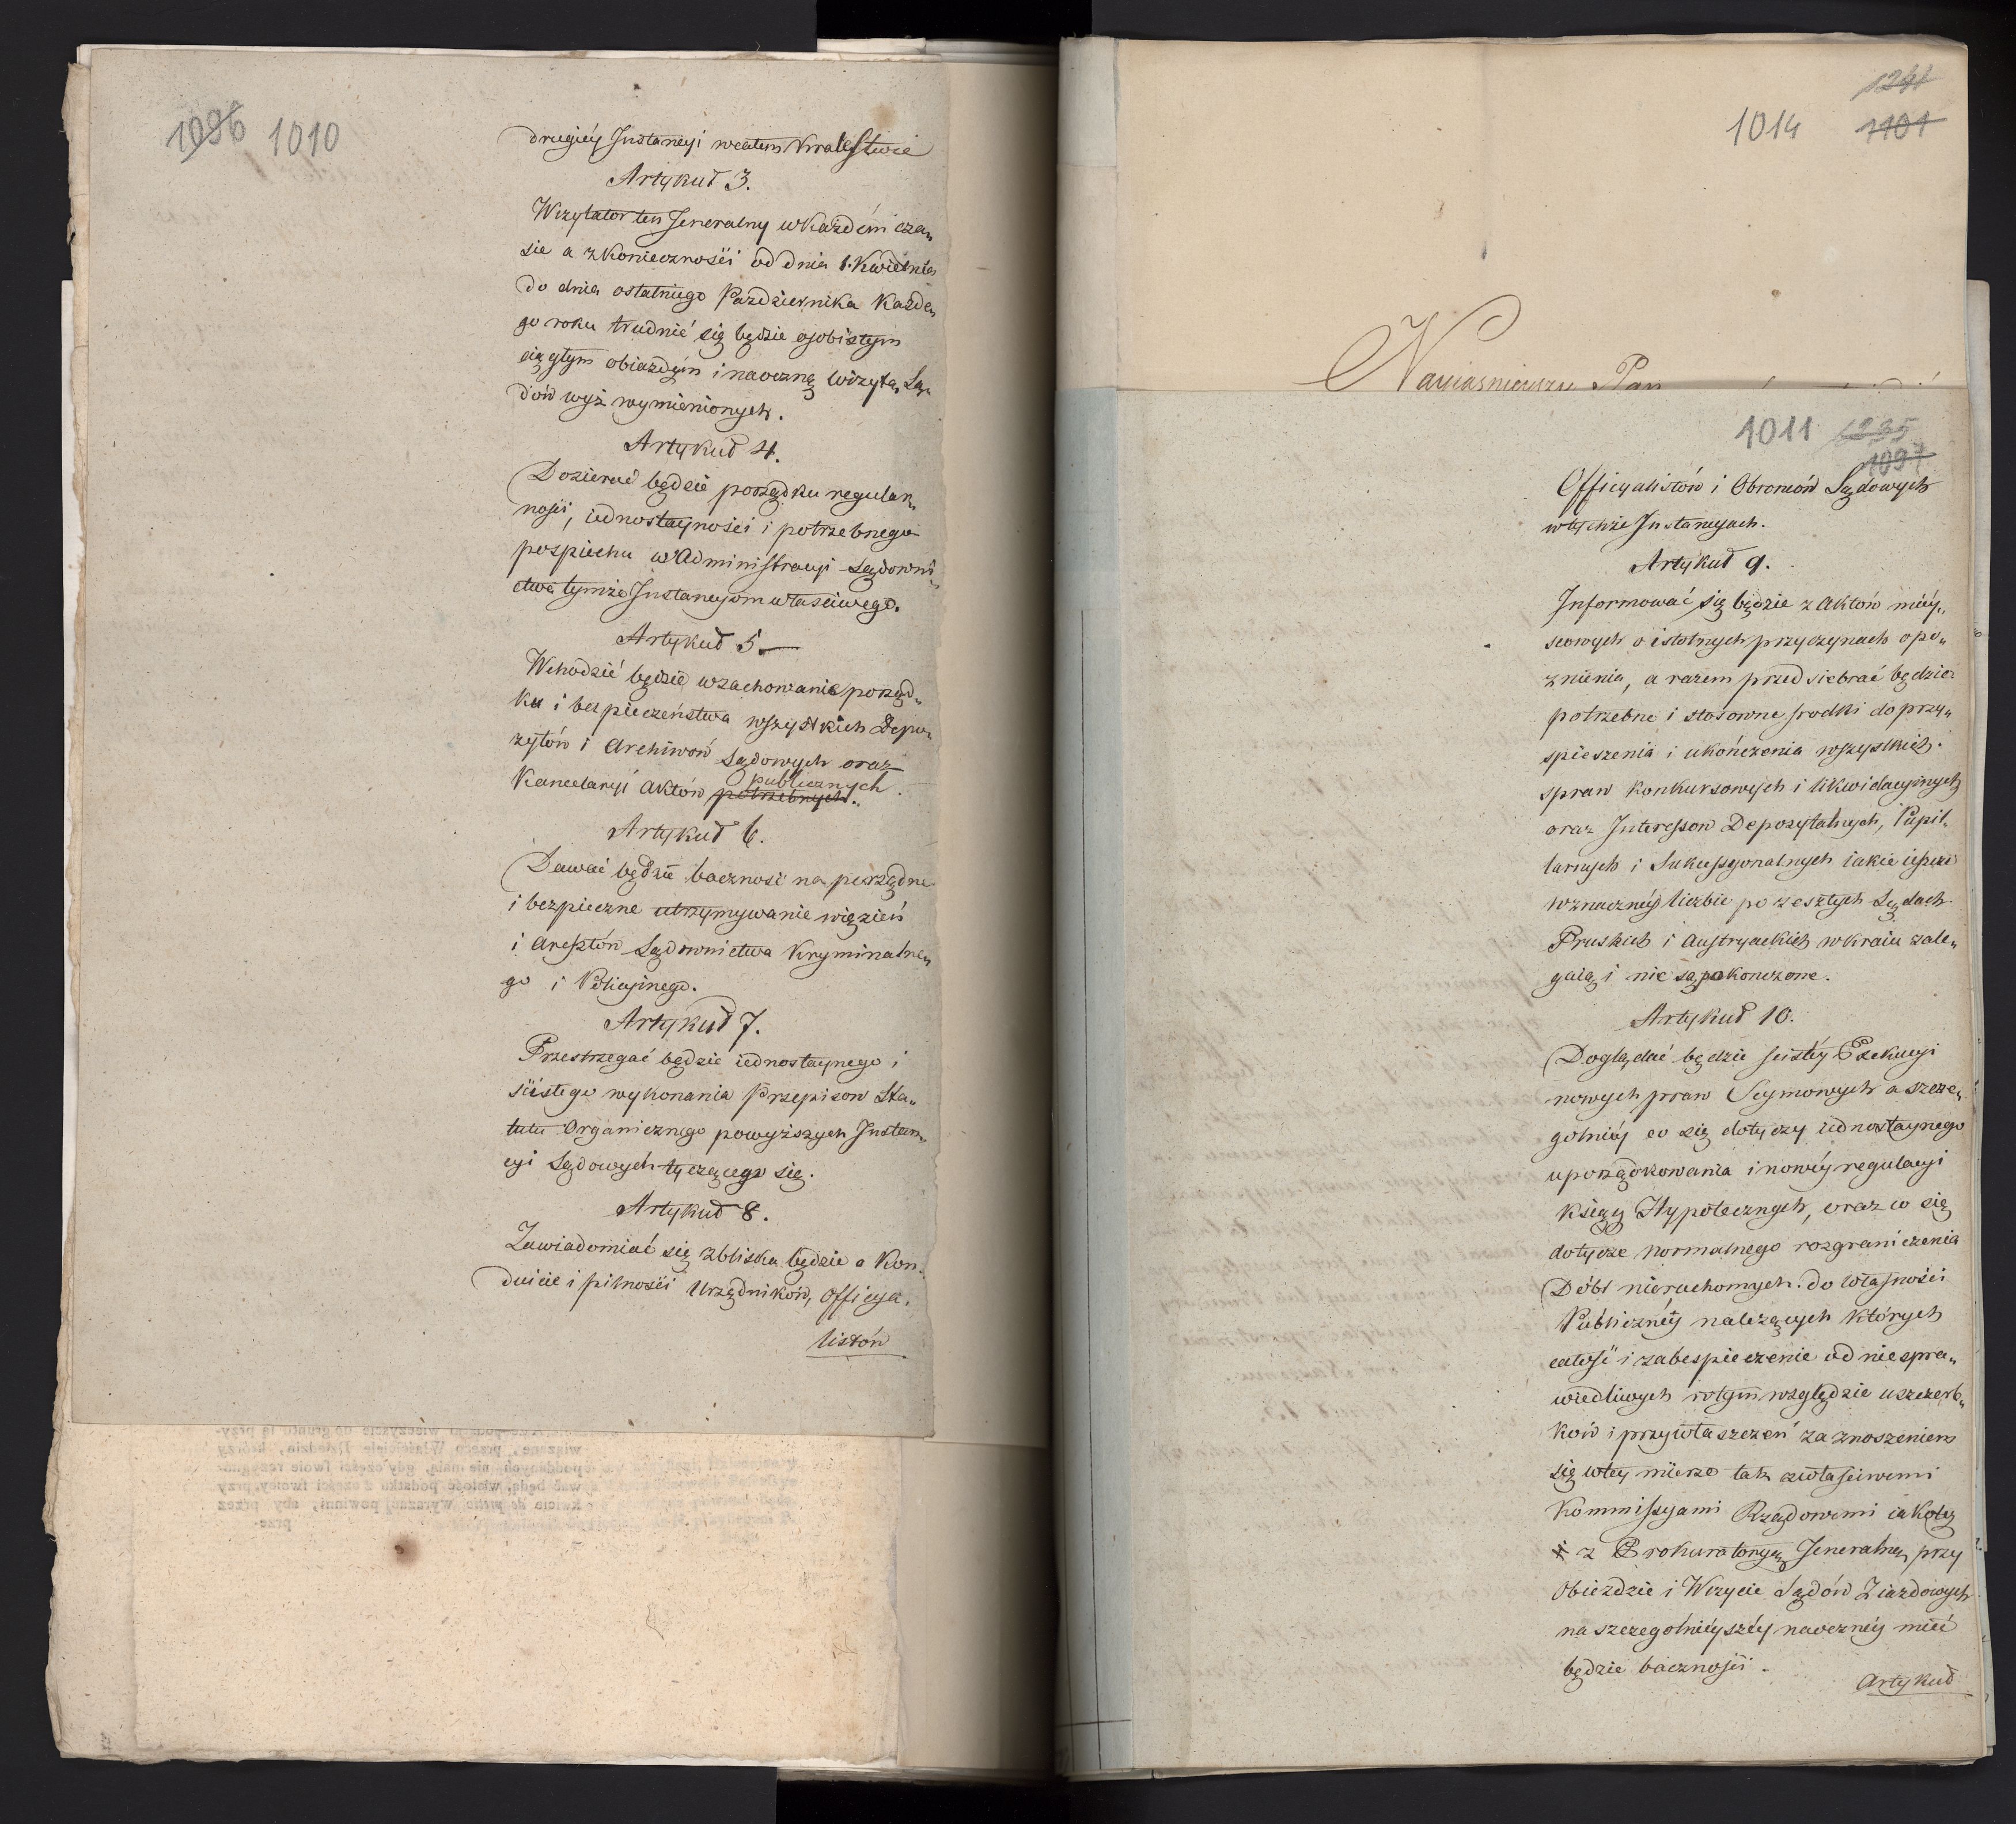 1096 1010
drugiéy Instancyi wcałem Krolestwie
Artykuł 3.
Wizytator ten Jeneralny w każdém cza„
sie a z koniecznosci od dnia 1. Kwietnia
do dnia ostatniego Pazdziernika każde„
go roku trudnić się będzie osobistym
ciągłym obiazdem i naoczną wizytą Są„
dów wyż wymienionych.
Artykuł 4.
Dozierać będzie porządku regular„
nosci, iednostayności i potrzebnego
pospiechu w Administracyi Sądowni„
ctwa tymże Instancyom właściwego.
Artykuł 5.
Wchodzić będzie w zachowanie porząd„
ku i bezpieczeństwa wszystkich Depo„
zytów i Archiwow Sądowych oraz
publicznych
Kancelaryi Aktów potrzebnych.
Artykuł 6.
Dawać będzie baczność na porządne
i bezpieczne utrzymywanie więzień
i Aresztów Sądownictwa Kryminalne„
go i Policyinego.
Artykuł 7.
Przestrzegać będzie iednostaynego i
scisłego wykonania Przepisow Sta„
tutu Organicznego powyższych Instan„
cyi Sądowych tyczącego się.
Artykuł 8.
Zawiadomiać się zbliska będzie o Kon„
duicie i pilności Urzędników, Officya„
listów
1241
1014 1101
Nayiasnieyszy Pan
1011 1235
1097
Officyalistów i Obroncow Sądowych
w tychże Instancyach.
Artykuł 9.
Informować się będzie z Aktów miéy„
scowych o istotnych przyczynach opo„
znienia, a razem przedsiebrać będzie
potrzebne i stosowne srodki do przy„
spieszenia i ukończenia wszystkich
spraw konkursowych i likwidacyinych
oraz Interessow Depozytalnych, Pupil„
larnych i Sukcessyonalnych iakie ieszcze
w znacznéy liczbie po zeszłych Sądach
Pruskich i Austryackich w kraiu zale„
gaią i nie są pokonczone.
Artykuł 10.
Doglądać będzie scisłéy Exekucyi
nowych praw Seymowych a szcze„
gólniéy co się dotyczy iednostaynego
uporządkowania i nowéy regulacyi
książg Hypotecznych, oraz co się
dotycze normalnego rozgraniczenia
Dóbr nieruchomych do własności
Publicznéy należących których
całość i zabespieczenie od niespra„
wiedliwych w tym względzie uszczerb„
ków i przywłaszczeń za znoszeniem
się wtey mierze tak z właściwemi
Kommissyami Rządowemi iakoteż
i z Prokuratoryą Jeneralną przy
Obieździe i Wizycie Sądów Ziazdowych
na szczególniéyszéy naoczney mieć
będzie baczności.
Artykuł